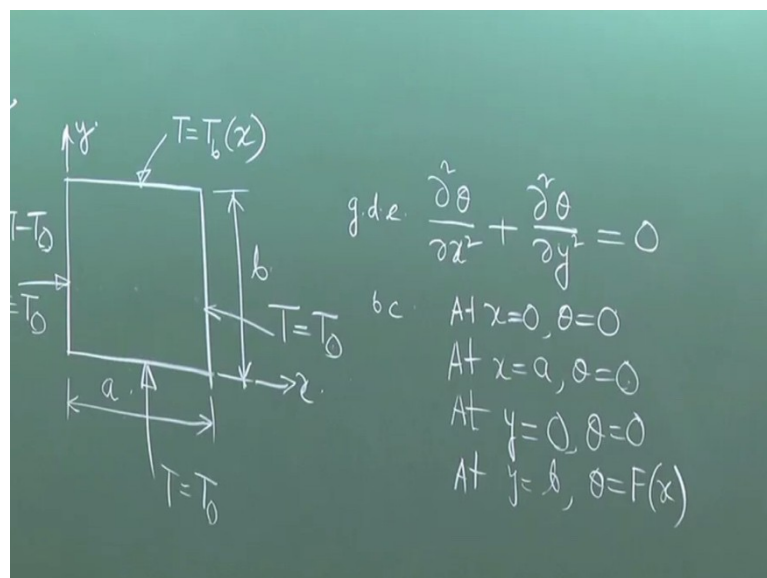 y
T=T_b(x)
T-T_0
=T_0
b
T=T_0
a
x
T=T_0
g.d.e. ∂²θ/∂x² + ∂²θ/∂y² = 0
bc At x=0, θ=0
At x=a, θ=0
At y=0, θ=0
At y=b, θ=F(x)